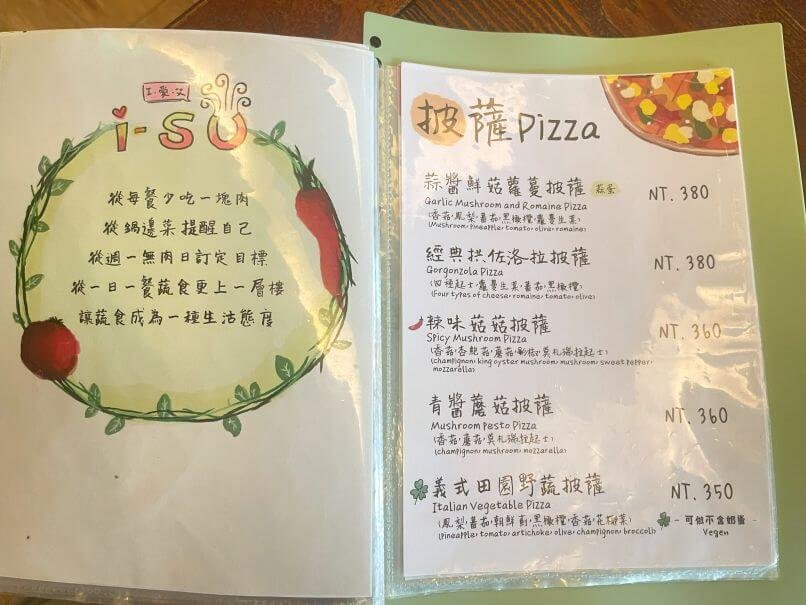 I.愛.艾
i-SU
從每餐少吃一塊肉
從鍋邊菜提醒自己
從週一無肉日訂定目標
從一日一餐蔬食更上一層樓
讓蔬食成為一種生活態度
披薩Pizza
蒜醬鮮菇蘿蔓披薩 蒜蛋 NT. 380
Garlic Mushroom and Romaine Pizza
(香菇,鳳梨,番茄,黑橄欖,蘿蔓生菜)
(Mushroom, pineapple, tomato, olive, romaine)
經典拱佐洛拉披薩 NT. 380
Gorgonzola Pizza
(四種起士,蘿蔓生菜,番茄,黑橄欖)
(Four tytes of cheese, romaine, tomato, olive)
辣味菇菇披薩 NT. 360
Spicy Mushroom Pizza
(香菇,杏鮑菇,蘑菇,彩椒,莫札瑞拉起士)
(champignon, king oyster mushroom, mushroom, sweet pepper,
mozzarella)
青醬蘑菇披薩 NT. 360
Mushroom pesto Pizza
(香菇,蘑菇,莫札瑞拉起士)
(champignon, mushroom, mozzarella)
義式田園野蔬披薩 NT. 350
Italian Vegetable Pizza
(鳳梨,番茄,朝鮮薊,黑橄欖,香菇,花椰菜)
(pineapple, tomato, artichoke, olive, champignon, broccoli)
- 可做不含奶蛋 -
Vegen